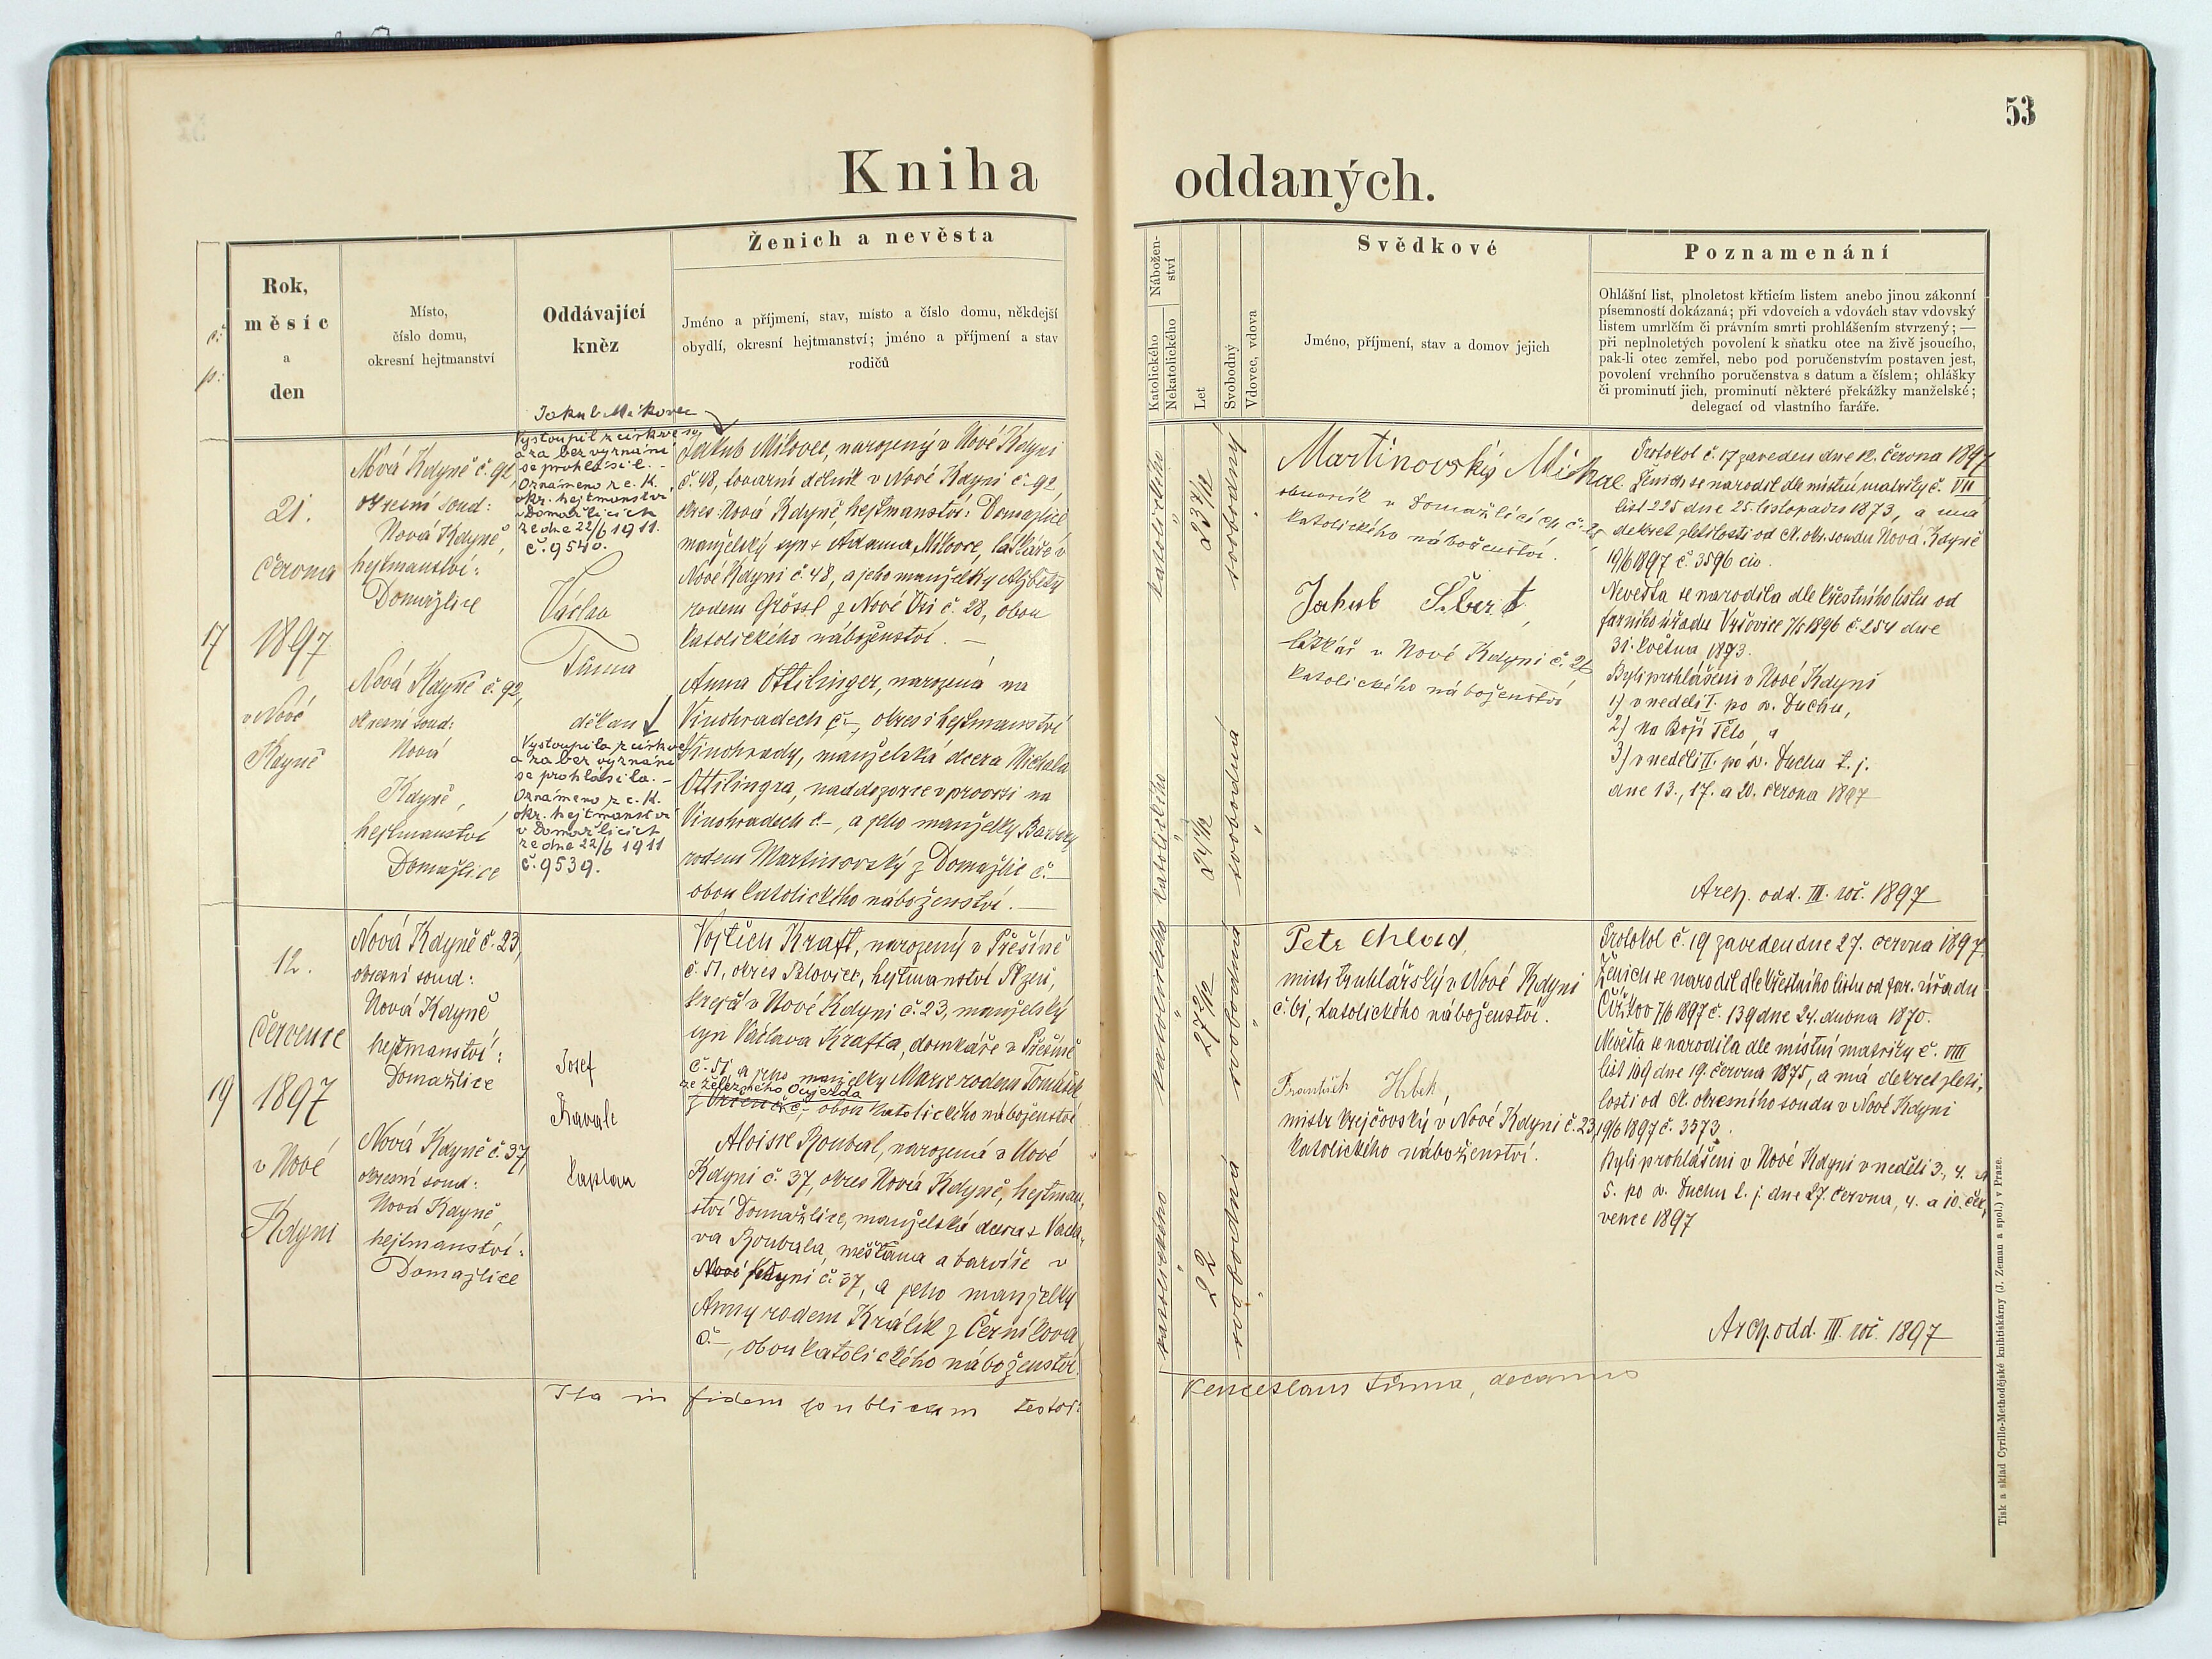 53
Kniha oddaných.
č:
p:
Rok,
měsíc
a
den
Místo,
číslo domu,
okresní hejtmanství
Oddávající
kněz
Ženich a nevěsta
Jméno a příjmení, stav, místo a číslo domu, někdejší
obydlí, okresní hejtmanství; jméno a příjmení a stav
rodičů
Nábožen-
ství
Katolického
Nekatolického
Let
Svobodný
Vdovec, vdova
Svědkové
Jméno, příjmení, stav a domov jejich
Poznamenání
Ohlášní list, plnoletost křticím listem anebo jinou zákonní
písemností dokázaná; při vdovcích a vdovách stav vdovský
listem umrlčím či právním smrti prohlášením stvrzený; —
při neplnoletých povolení k sňatku otce na živě jsoucího,
pak-li otec zemřel, nebo pod poručenstvím postaven jest,
povolení vrchního poručenstva s datum a číslem; ohlášky
či prominutí jich, prominutí některé překážky manželské;
delegací od vlastního faráře.
17
21.
června
1897
v Nové
Kdyně
Nová Kdyně č. 92,
okresní soud:
Nová Kdyně,
hejtmanství:
Domažlice
Nová Kdyně č. 92,
okresní soud:
Nová
Kdyně,
hejtmanství
Domažlice
Jakub Mikovec
Vystoupil z církve sv.
a za bez vyznání
se prohlásil. –
Oznámeno z c. k.
okr. hejtmanství
v Domažlicích
ze dne 22/6 1911.
č. 9540.
Václav
Tůma
děkan
Vystoupila z církve
a za bez vyznání
se prohlásila. –
Oznámeno z c. k.
okr. hejtmanství
v Domažlicích
ze dne 22/6 1911
č. 9539.
Jakub Mikovec, narozený v Nové Kdyni
č. 48, tovární dělník v Nové Kdyni č. 92,
okres Nová Kdyně, hejtmanství: Domažlice
manželský syn + Adama Mikovce, látkáře v
Nové Kdyni č. 48, a jeho manželky Alžběty
rodem Grössl z Nové Vsi č. 28, obou
katolického náboženství. –
Anna Ottilinger, narozená na
Vinohradech č –, okres i hejtmanství
Vinohrady, manželská dcera Michala
Ottilingra, naddozorce v provozi na
Vinohradech č –, a jeho manželky Barbory
rodem Martinovský z Domažlic č. –
obou katolického náboženství. –
katolického
23 7/12
svobodný
katolického
24 1/12
svobodná
Martinovský Michal
obuvník v Domažlících č. 25
katolického náboženství.
Jakub Šbert,
látkář v Nové Kdyni č. 26,
katolického náboženství
Protokol č. 17 zaveden dne 12. června 1897
Ženich se narodil dle místní matriky č. VII
list 225 dne 25. listopadu 1873, a má
dekret pletilosti od ck. okr. soudu Nová Kdyně
19/6 1897 č. 3596 civ.
Nevěsta se narodila dle křestního listu od
farního úřadu Vršovice 7/5 1896 č. 254 dne
31. května 1873.
Byli prohlášeni v Nové Kdyni
1) v neděli I. po sv. Duchu,
2) na Boží Tělo, a
3) v neděli II. po sv. Duchu t. j.
dne 13., 17. a 20. června 1897
Arch. odd. III. roč. 1897
19
12.
července
1897
v Nové
Kdyni
Nová Kdyně č. 23,
okresní soud:
Nová Kdyně
hejtmanství:
Domažlice
Nová Kdyně č. 37,
okresní soud:
Nová Kdyně
hejtmanství:
Domažlice
Josef
kaplan
Vojtěch Kraft, narozený v Přešíně
č. 51, okres Blovice, hejtmanství Plzeň,
krejčí v Nové Kdyni č. 23, manželský
syn Václava Krafta, domkáře v Přešíně
č. 51, a jeho manželky Marie rodem Tomášek
ze Železného Oujezda
č –, obou katolického náboženství
Aloisie Roubal, narozená v Nové
Kdyni č. 37, okres Nová Kdyně, hejtman-
ství Domažlice, manželská dcera + Václa-
va Roubala, měšťana a barvíře v
Nové Kdyni č. 37, a jeho manželky
Anny rodem Králík z Černíkova
č –, obou katolického náboženství
katolického
27 2/12
svobodná
katolického
22
svobodná
Petr Chlad,
mistr truhlářský v Nové Kdyni
č. 61, katolického náboženství.
František Hrbek,
mistr krejčovský v Nové Kdyni č. 23,
katolického náboženství.
Protokol č. 19 zaveden dne 27. června 1897.
Ženich se narodil dle křestního listu od far. úřadu
Čížkov 7/6 1897 č. 139 dne 24. dubna 1870.
Nevěsta se narodila dle místní matriky č. VIII
list 109 dne 19. června 1875, a má dekret pleti-
losti od ck. okresního soudu v Nové Kdyni
19/6 1897 č. 3573.
Byli prohlášeni v Nové Kdyni v neděli 3., 4. a
5. po sv. Duchu t. j. dne 27. června, 4. a 10. čer-
vence 1897
Arch. odd. III. roč. 1897
Ita in fidem publicam testor: Venceslaus Tůma, decanus
Tisk a sklad Cyrillo-Methodějské knihtiskárny (J. Zeman a spol.) v Praze.